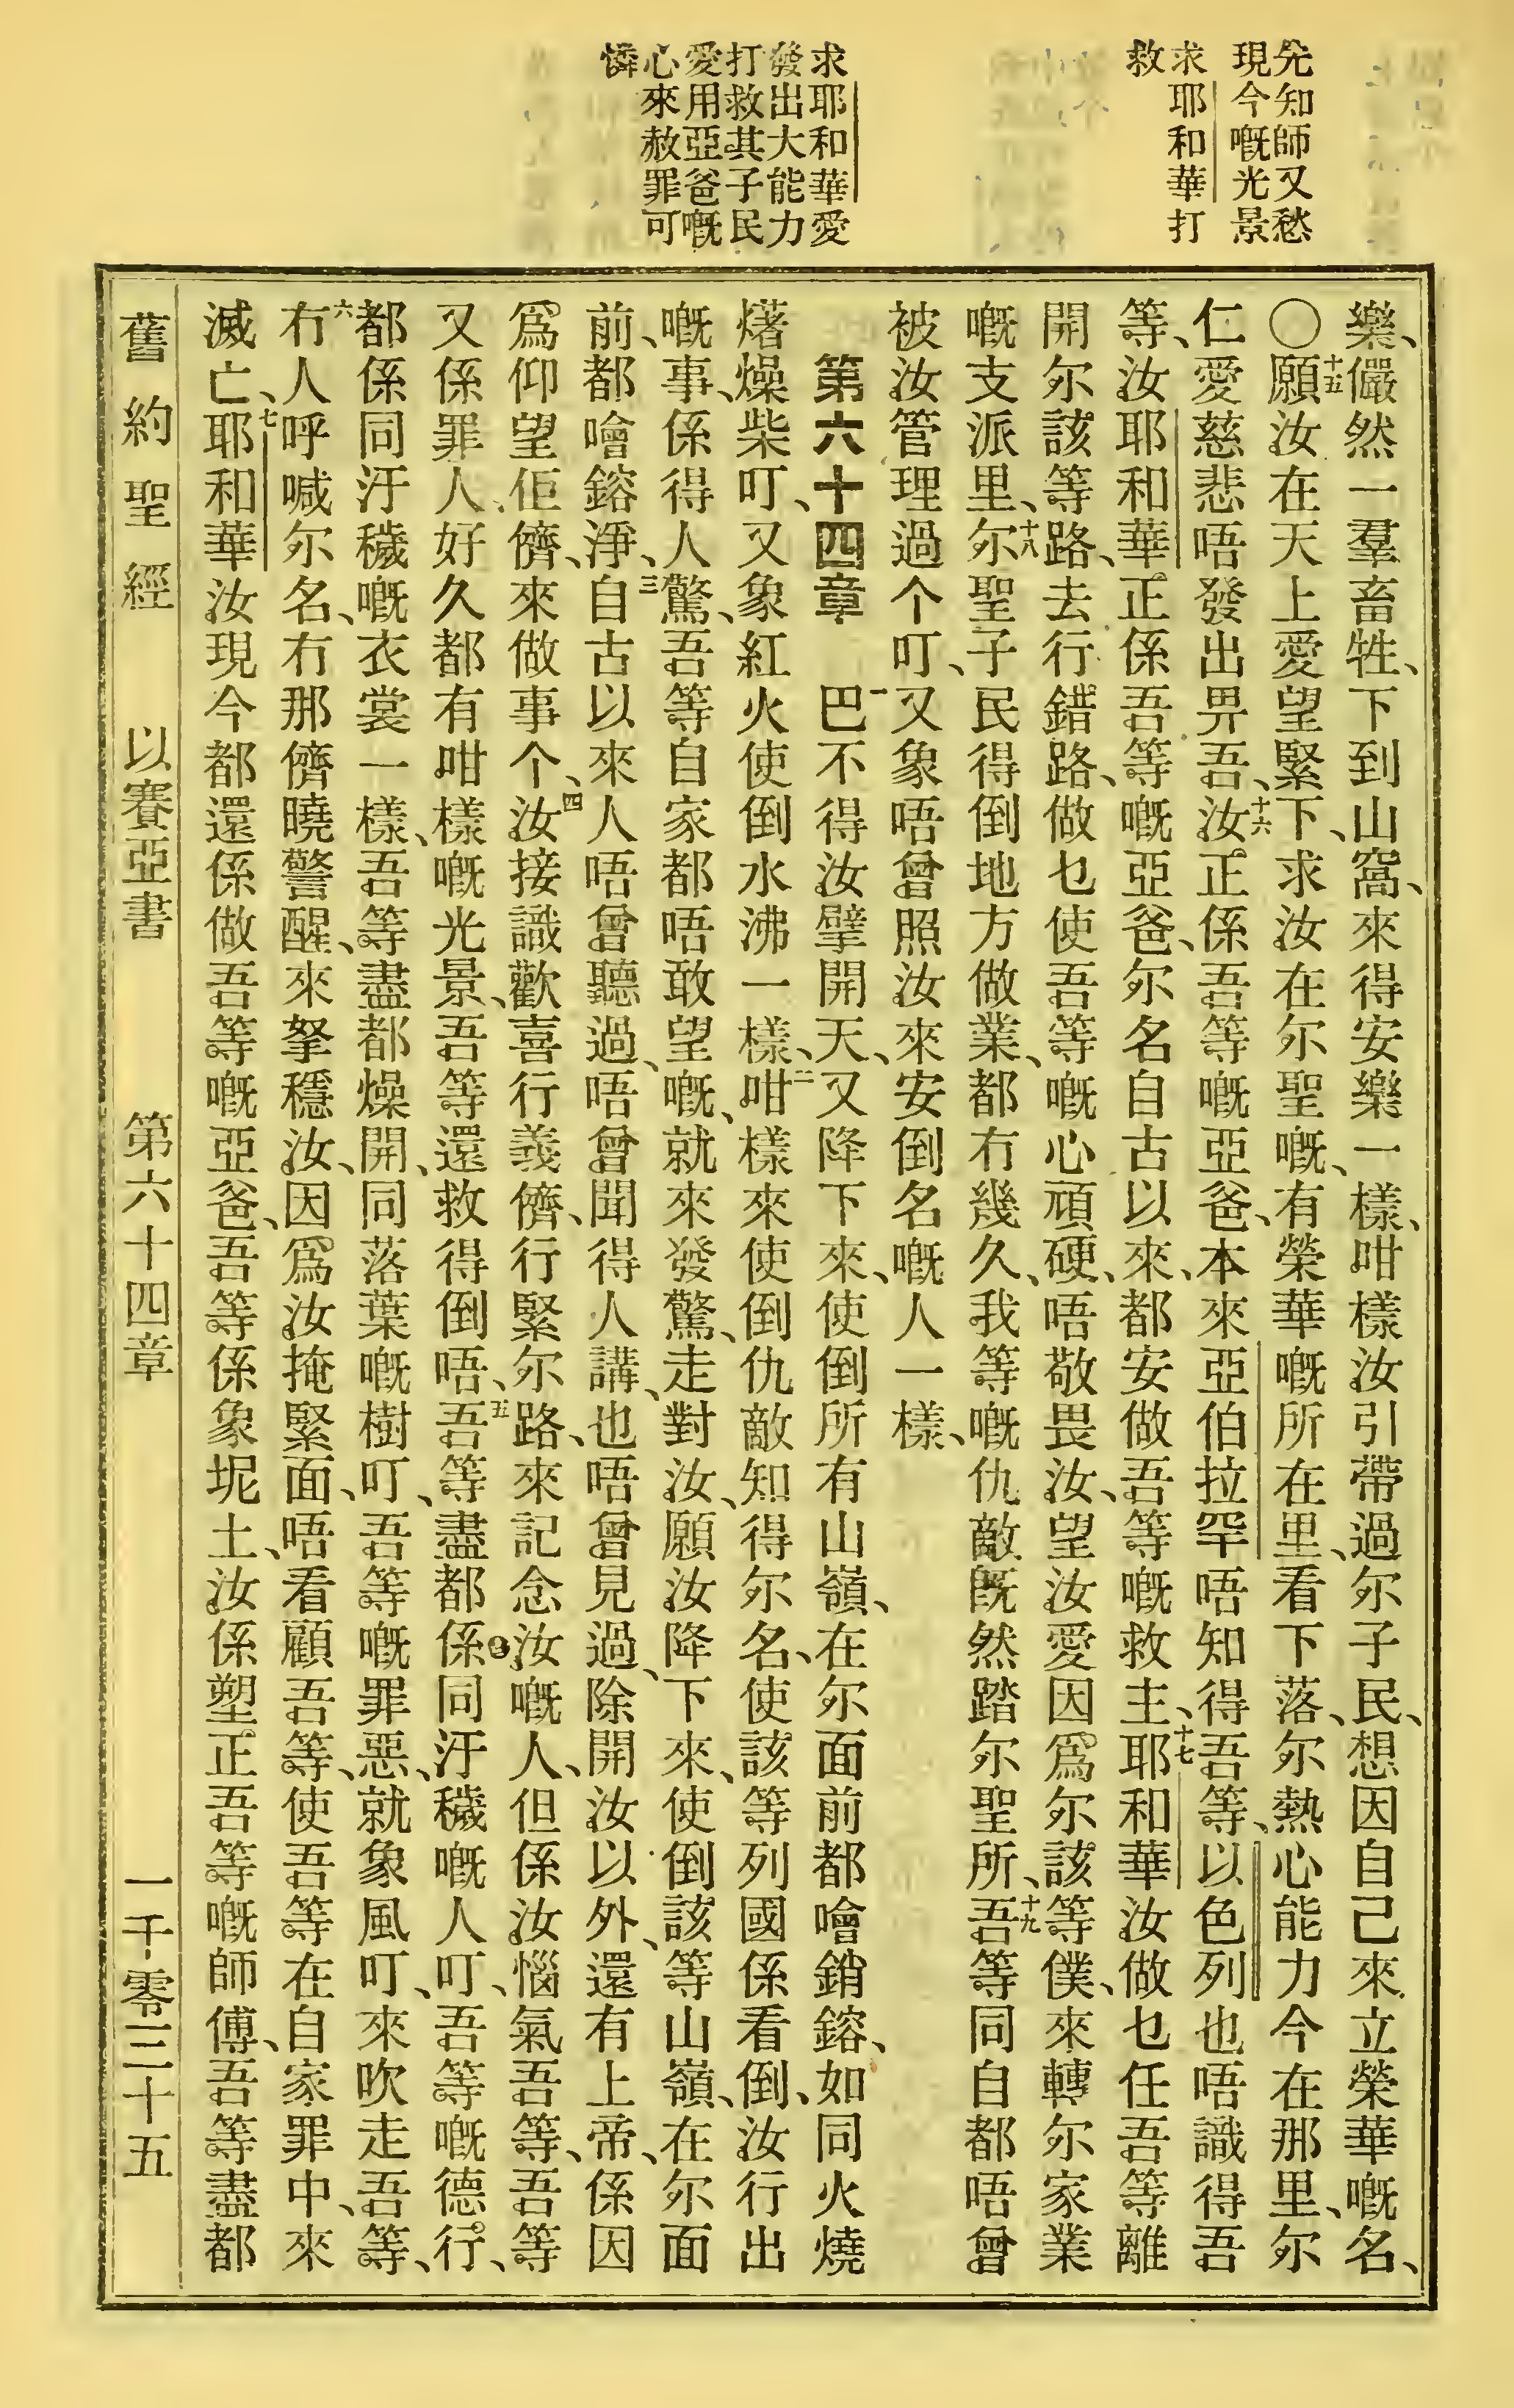 先知師又愁
現今嘅光景
求耶和華打
救
求耶和華愛
發出大能力
打救其子民
愛用亞爸嘅
心來赦罪可
憐
樂、儼然一羣畜牲、下到山窩、來得安樂一樣、咁樣汝引帶過尔子民、想因自己來立榮華嘅名、
〇十五願汝在天上愛望緊下、求汝在尔聖嘅、有榮華嘅所在里、看下落、尔熱心能力今在那里、尔
仁愛慈悲唔發出畀吾、十六汝正係吾等嘅亞爸、本來亞伯拉罕唔知得吾等、以色列也唔識得吾
等、汝耶和華正係吾等嘅亞爸、尔名自古以來、都安做吾等嘅救主、十七耶和華汝做乜任吾等離
開尔該等路、去行錯路、做乜使吾等嘅心頑硬、唔敬畏汝、望汝愛因爲尔該等僕、來轉尔家業
嘅支派里、十八尔聖子民得倒地方做業、都冇幾久、我等嘅仇敵旣然踏尔聖所、十九吾等同自都唔曾
被汝管理過个叮、又象唔曾照汝來安倒名嘅人一樣、
第六十四章 一巴不得汝擘開天、又降下來、使倒所有山嶺、在尔面前都噲銷鎔、如同火燒
㷮燥柴叮、又象紅火使倒水沸一樣、二咁樣來使倒仇敵知得尔名、使該等列國係看倒、汝行出
嘅事、係得人驚、吾等自家都唔敢望嘅、就來發驚、走對汝、願汝降下來、使倒該等山嶺、在尔面
前、都噲鎔淨、三自古以來人唔曾聽過、唔曾聞得人講、也唔曾見過、除開汝以外、還有上帝、係因
爲仰望佢儕、來做事个、四汝接識歡喜行義儕、行緊尔路、來記念汝嘅人、但係汝惱氣吾等、吾等
又係罪人、好久都有咁樣嘅光景、吾等還救得倒唔、五吾等盡都係同汙穢嘅人叮、吾等嘅德行、
都係同汙穢嘅衣裳一樣、吾等盡都燥開、同落葉嘅樹叮、吾等嘅罪惡、就象風叮、來吹走吾等、
六冇人呼喊尔名、冇那儕曉警醒、來拏穩汝、因爲汝掩緊面、唔看顧吾等、使吾等在自家罪中、來
滅亡、七耶和華汝現今都還係做吾等嘅亞爸、吾等係象坭土、汝係塑正吾等嘅師傅、吾等盡都
舊約聖經 以賽亞書 第六十四章 一千零三十五